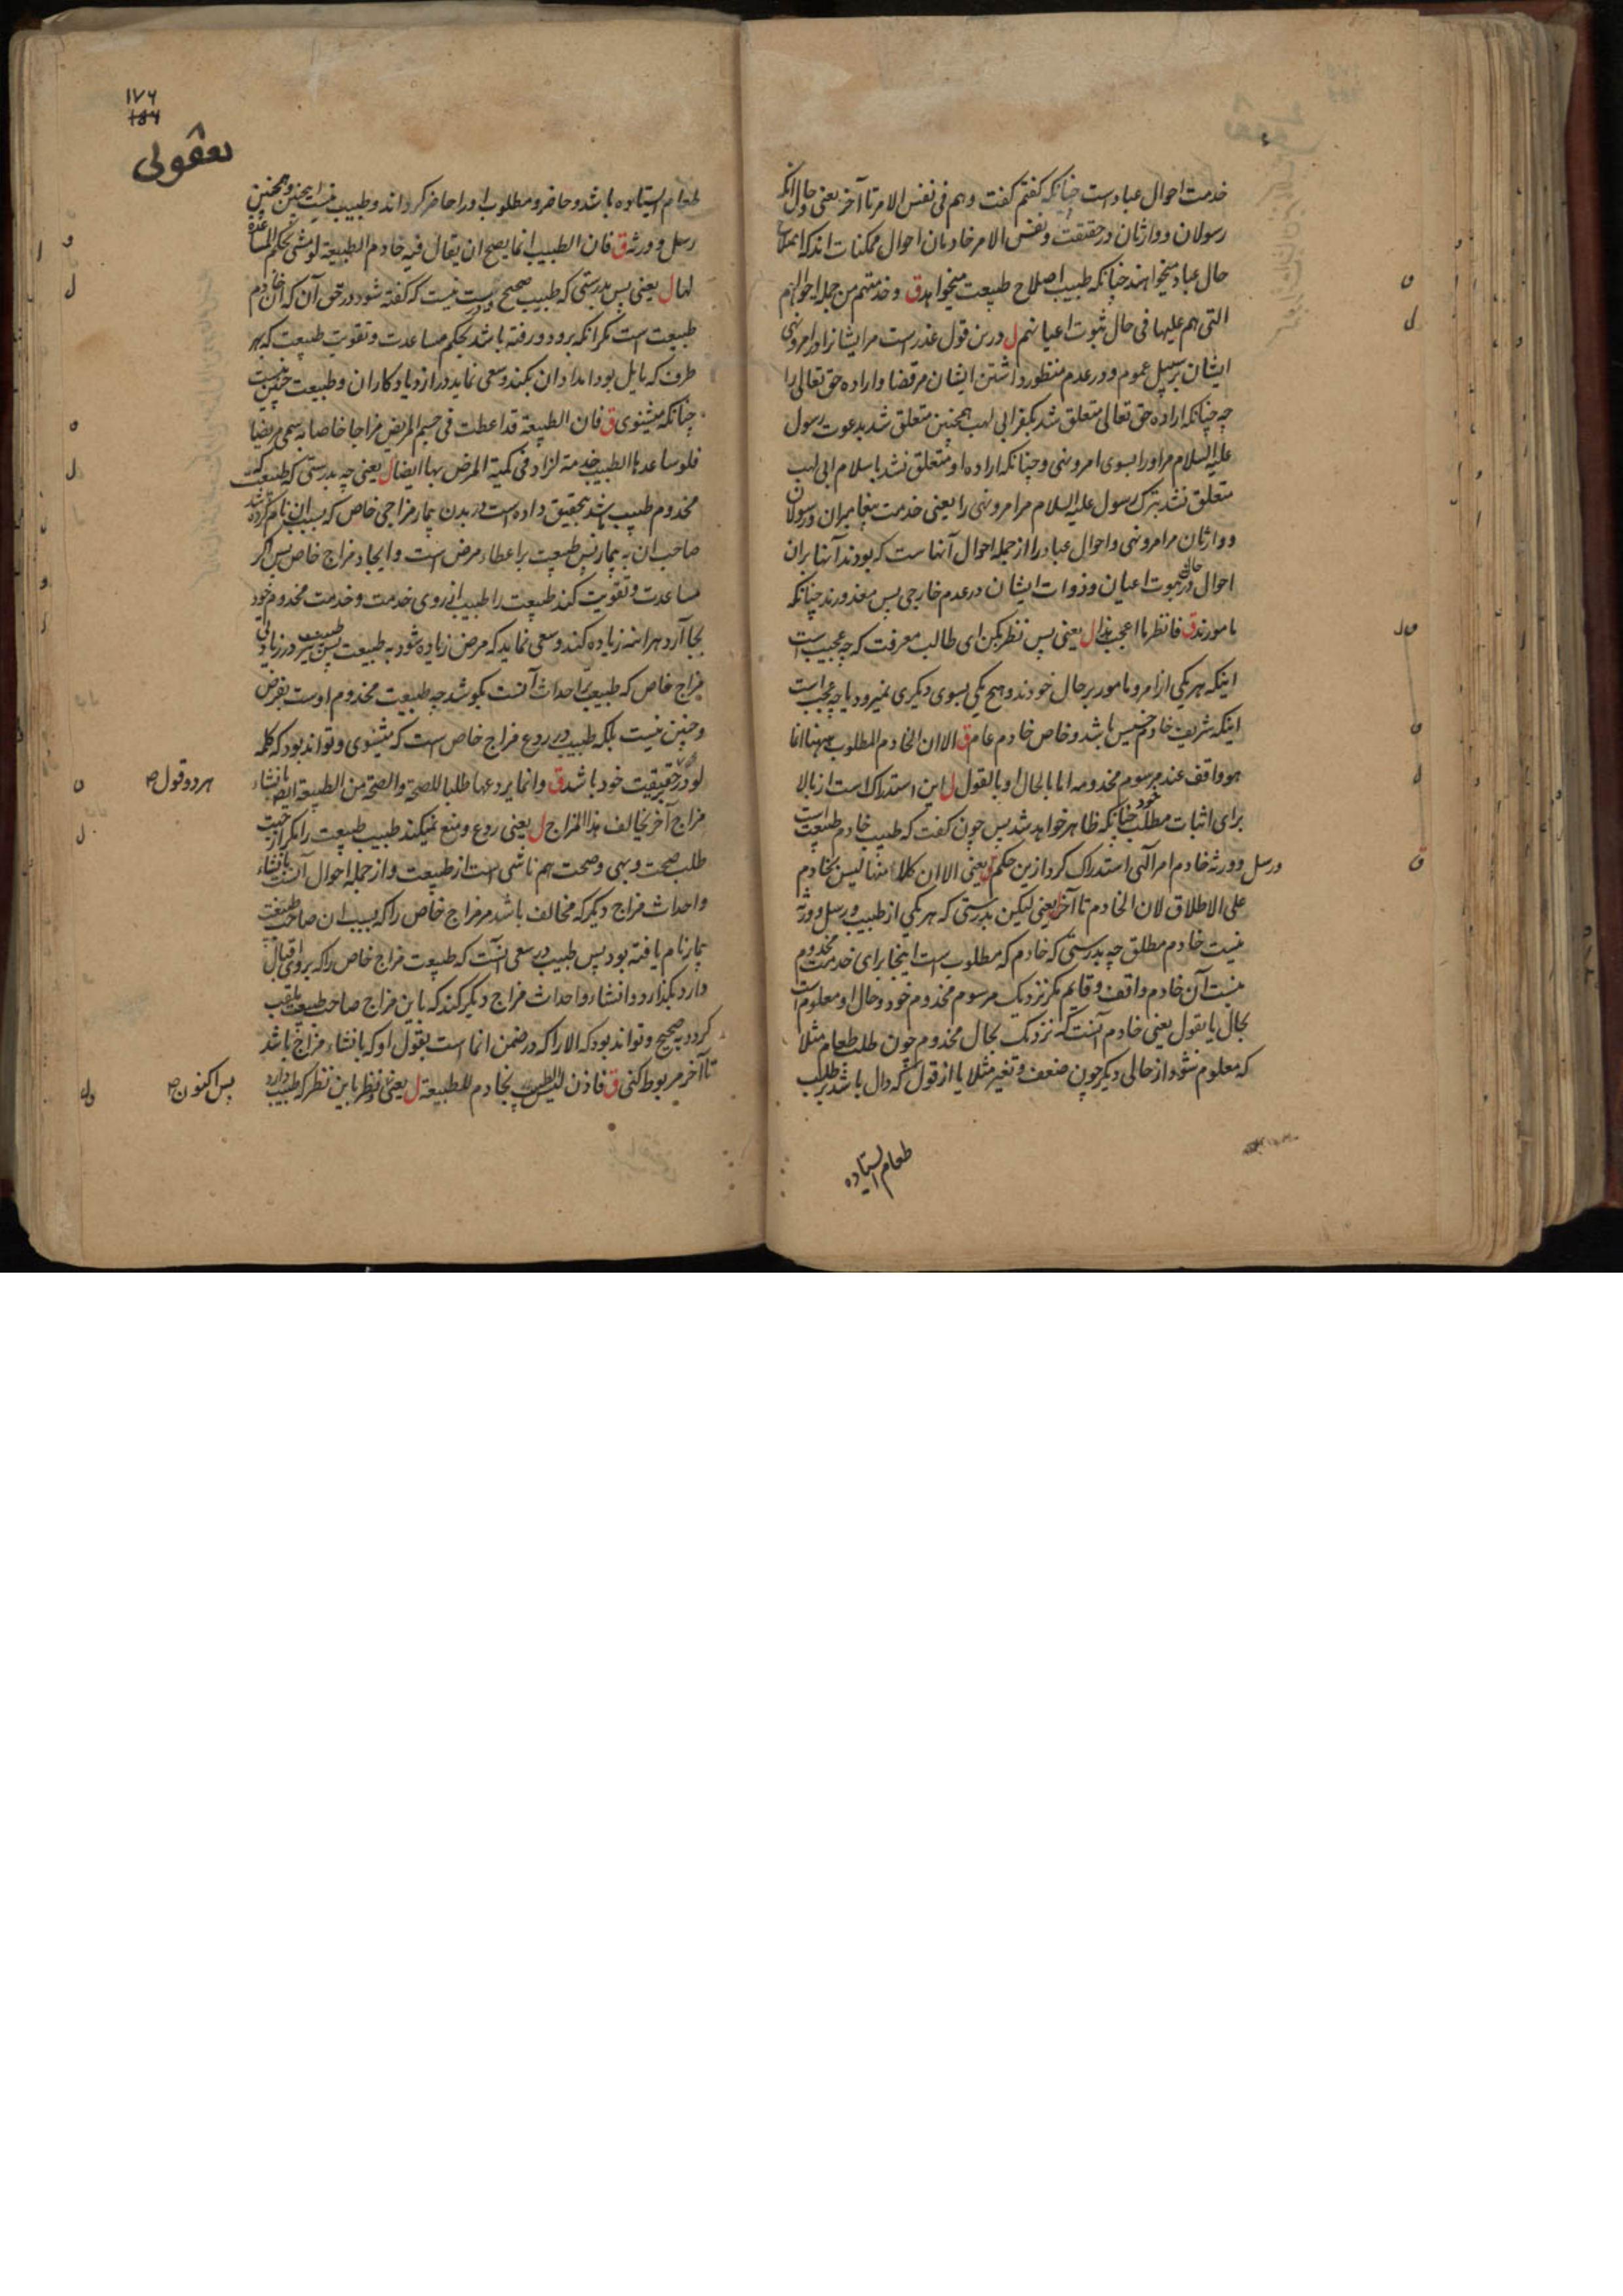 خدمت احوال عباد است چنانکه کفتم کفت وهم فی نفس الامر تا آخر یعنی وحال آنکه
رسولان ووارثان در حقیقت ونفس الامر خادمان احوال ممکنات اند که اصلاح
حال عباد میخواهند چنانکه طبیب اصلاح طبیعت میخواهد ق وخدمتهم من جملة احوالهم
التی هم علیها فی حال ثبوت اعیانهم ل درین قول عذر است مرایشانرا در امر ونهی
ایشان بر سبیل عموم ودر عدم منظور داشتن ایشان مر قضا واراده حق تعالی را
چه چنانکه اراده حق تعالی متعلق شد بکفر ابی لهب همچنین متعلق شد بدعوت رسول
علیه السلام مر اورا بسوی امر ونهی وچنانکه اراده او متعلق نشد باسلام ابی لهب
متعلق نشد بترک رسول علیه السلام مر امر ونهی را یعنی خدمت پیغامبران ورسولان
ووارثان مر امر ونهی واحوال عباد را از جمله احوال آنهاست که بودند آنها بران
احوال در حالت ثبوت اعیان وذوات ایشان در عدم خارجی پس معذورند چنانکه
مامورند ق فانظر ما اعجب هذا ل یعنی پس نظر بکن ای طالب معرفت که چه عجیب است
اینکه هر یکی از امر ومامور بر حال خودند وهیچ یکی بسوی دیکری نمیرود یا چه عجب است
اینکه شریف خادم خسیس باشد وخاص خادم عام ق الا ان الخادم المطلوب ههنا انما
هو واقف عند مرسوم مخدومه اما بالحال او بالقول ل این استدراک است از بالا
برای اثبات مطلب خود چنانکه ظاهر خواهد شد پس چون کفت که طبیب خادم طبیعت است
ورسل وورثه خادم امر الهی استدراک کرد ازین حکم یعنی الا ان کلا منها لیس بخادم
علی الاطلاق لان الخادم تا آخر یعنی لیکن بدرستی که هر یکی از طبیب ورسل وورثه
نیست خادم مطلق چه بدرستی که خادم که مطلوب است اینجا برای خدمت مخدوم
نیست آن خادم واقف وقایم مکر نزدیک مرسوم مخدوم خود وحال او معلوم است
بحال یا بقول یعنی خادم آنست که نزدیک بحال مخدوم چون طلب طعام مثلا
که معلوم شود از حالی دیکر چون ضعف وتغیر مثلا یا از قولش که دال باشد بر طلب
طعام استاده
١٧٦
طعام استاده باشد وحاضر ومطلوب اورا حاضر کرداند وطبیب نیست اینچنین وهمچنین
رسل وورثه ق فان الطبیب انما یصح ان یقال فیه خادم الطبیعة لو مشی بحکم المساعدة
لها ل یعنی پس بدرستی که طبیب صحیح ودرست نیست که کفته شود در حق آن که آن خادم
طبیعت است مکر آنکه برود ورفته باشد بحکم مساعدت وتقویت طبیعت که بهر
طرف که مایل بود امداد آن بکند وسعی نماید در ازدیاد کار آن وطبیعت چنین نیست
چنانکه میشنوی ق فان الطبیعة قد اعطت فی جسم المریض مزاجا خاصا به سمی مریضا
فلو ساعدها الطبیب خدمة لزاد فی کمیة المرض بها ایضا ل یعنی چه بدرستی که طبیعت که
مخدوم طبیب باشد بتحقیق داده است در بدن بیمار مزاجی خاص که بسبب آن نام کرده شد
صاحب آن به بیمار پس طبیعت براعطاء مرض است وایجاد مزاج خاص پس اکر
مساعدت وتقویت کند طبیعت را طبیب از روی خدمت وخدمت مخدوم خود
بجا آرد هر آینه زیاده کند وسعی نماید که مرض زیاده شود به طبیعت پس طبیب نیز در زیادتی
مزاج خاص که طبیعت بر احداث آنست بکوشد چه طبیعت مخدوم اوست بفرض
وچنین نیست بلکه طبیب در ردع مزاج خاص است که میشنوی وتواند بود که کلمه
لو در حقیقت خود باشد ق وانما یردعها طلبا للصحة والصحة من الطبیعة ایضا بانشاء
هر دو قول ص
مزاج آخر یخالف هذا المزاج ل یعنی ردع ومنع نمیکند طبیب طبیعت را مکر از جهت
طلب صحت وبهی وصحت هم ناشی است از طبیعت واز جمله احوال آنست بانشاء
واحداث مزاج دیکر که مخالف باشد مر مزاج خاص را که بسبب آن صاحب طبیعت
بیمار نام یافته بود پس طبیب در سعی آنست که طبیعت مزاج خاص را که بروی اقبال
دارد بکذارد وانشاء واحداث مزاج دیکر کند که باین مزاج صاحب طبیعت ملقب
کردد به صحیح وتواند بود که الا را که در ضمن انما است بقول او که بانشاء مزاج باشد
تا آخر مربوط کنی ق فاذن لیس الطبیب بخادم للطبیعة ل یعنی ونظر باین نظر که طبیب دارد
پس اکنون ص